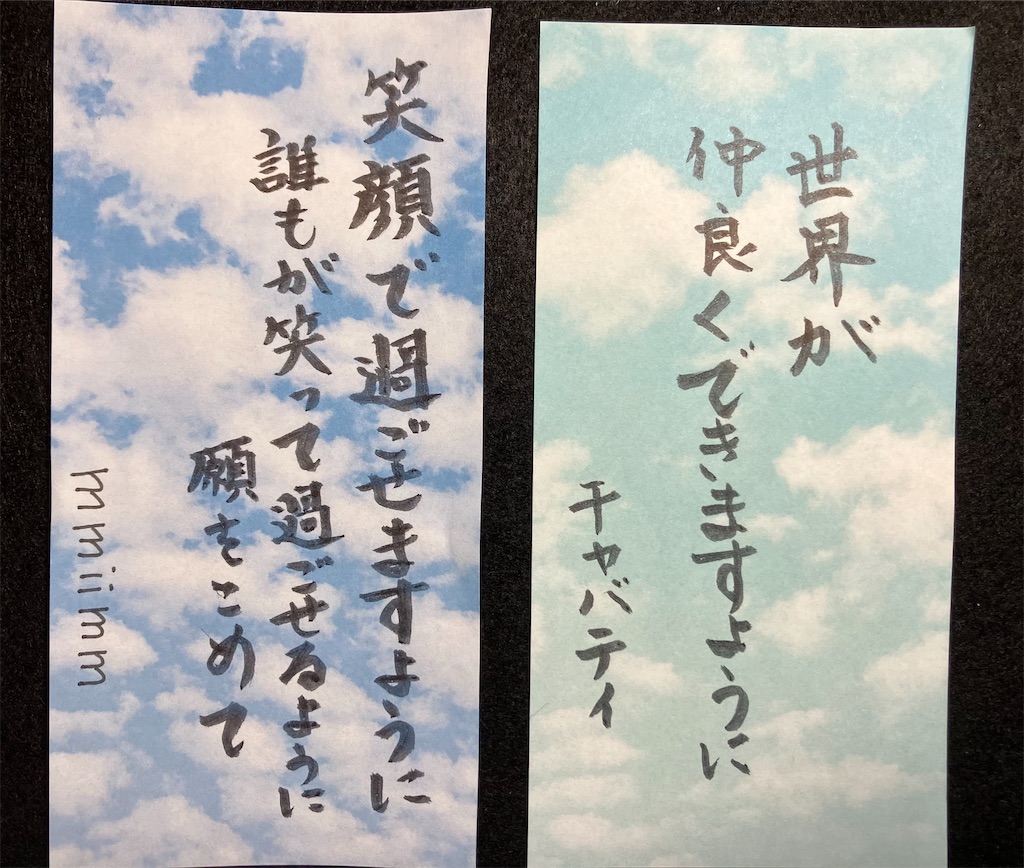 世界が
仲良くできますように
チャバティ
笑顔で過ごせますように
誰もが笑って過ごせるように
願をこめて
mmiimm